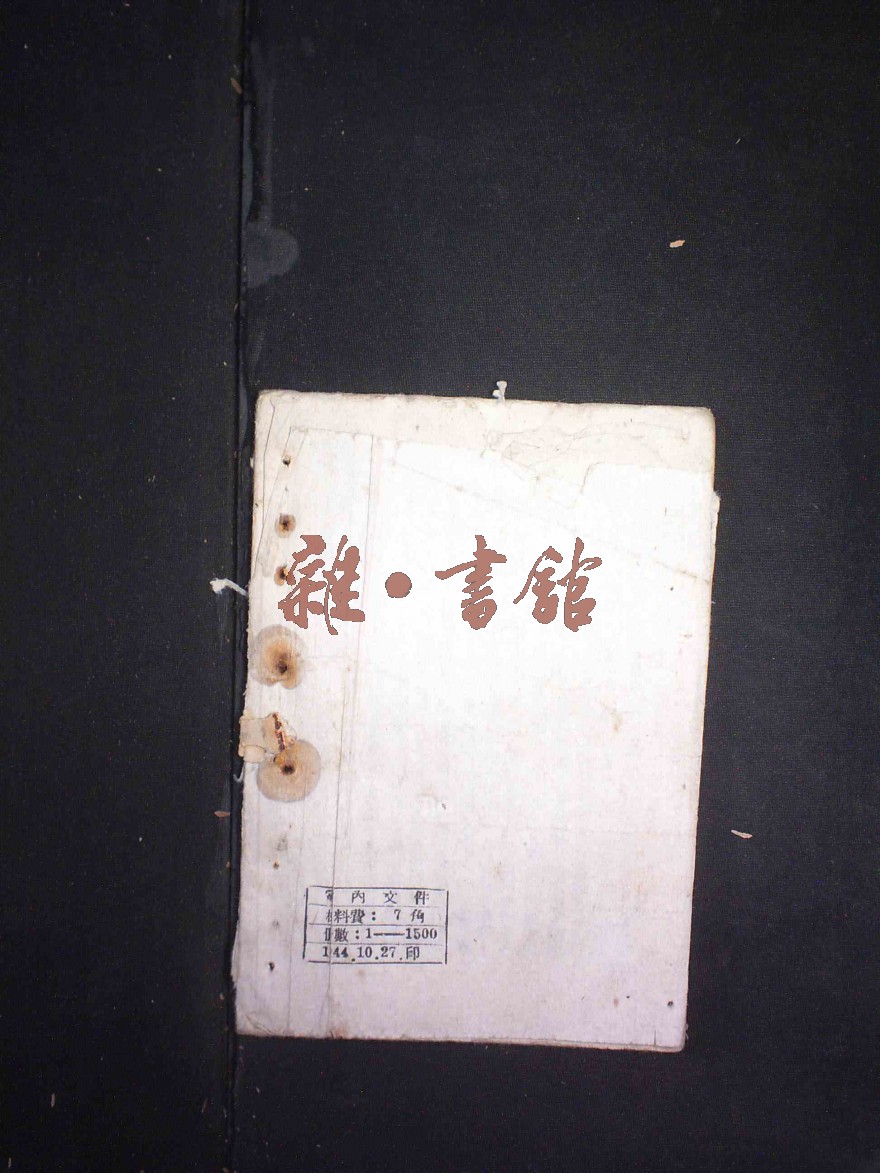 雜·書館
內文件
料費：7角
數：1——1500
44.10.27.印